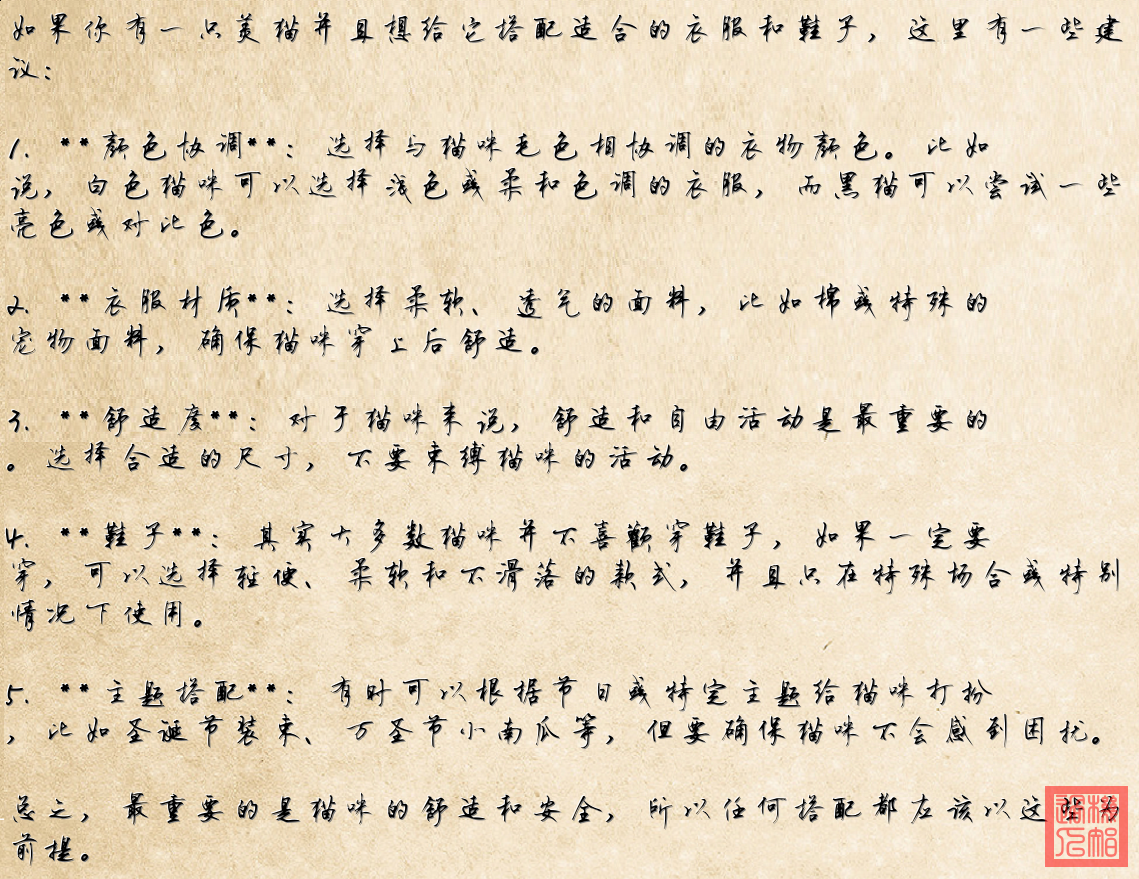 如果你有一只美猫并且想给它搭配适合的衣服和鞋子，这里有一些建
议：
1. **颜色协调**：选择与猫咪毛色相协调的衣物颜色。比如
说，白色猫咪可以选择浅色或柔和色调的衣服，而黑猫可以尝试一些
亮色或对比色。
2. **衣服材质**：选择柔软、透气的面料，比如棉或特殊的
宠物面料，确保猫咪穿上后舒适。
3. **舒适度**：对于猫咪来说，舒适和自由活动是最重要的
。选择合适的尺寸，不要束缚猫咪的活动。
4. **鞋子**：其实大多数猫咪并不喜欢穿鞋子，如果一定要
穿，可以选择轻便、柔软和不滑落的款式，并且只在特殊场合或特别
情况下使用。
5. **主题搭配**：有时可以根据节日或特定主题给猫咪打扮
，比如圣诞节装束、万圣节小南瓜等，但要确保猫咪不会感到困扰。
总之，最重要的是猫咪的舒适和安全，所以任何搭配都应该以这些为
前提。